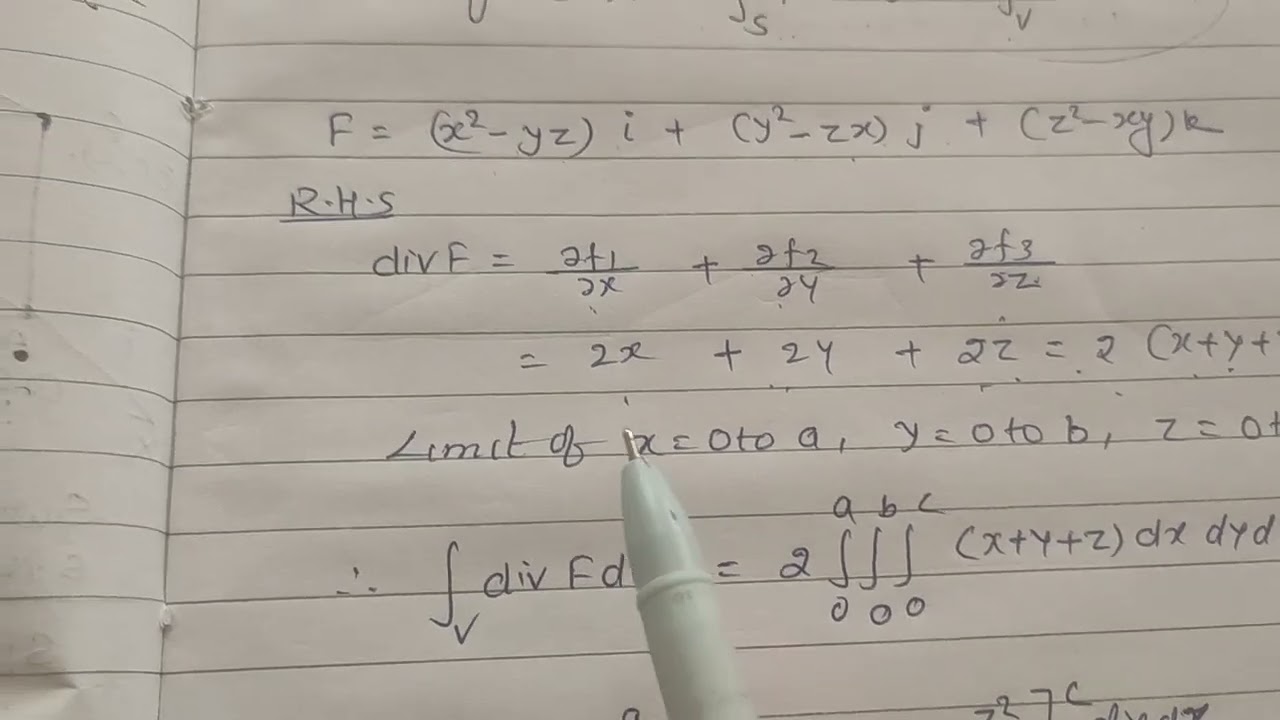 ∫S ∫V
F = (x² - yz) i + (y² - zx) j + (z² - xy) k
R.H.S
div F = ∂f1/∂x + ∂f2/∂y + ∂f3/∂z
= 2x + 2y + 2z = 2 (x+y+
Limit of x = 0 to a, y = 0 to b, z = 0 t
∴ ∫V div F d = 2 ∫0^a ∫0^b ∫0^c (x+y+z) dx dy d
z² ]^c